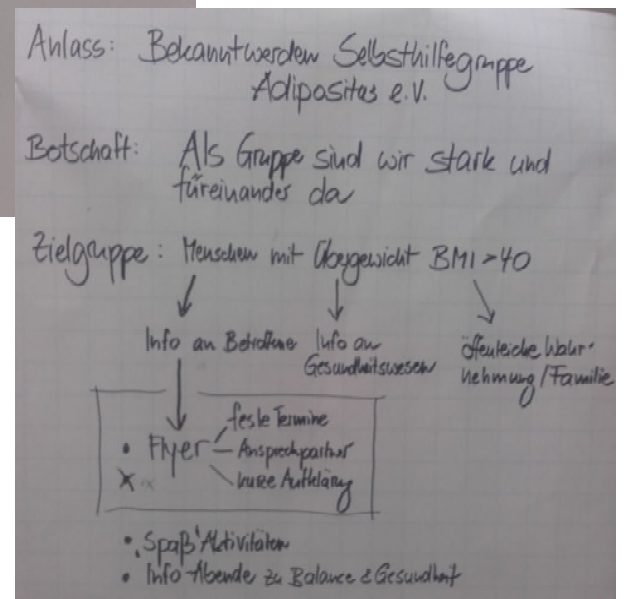 Anlass: Bekanntwerden Selbsthilfegruppe
Adipositas e.V.
Botschaft: Als Gruppe sind wir stark und
füreinander da
Zielgruppe: Menschen mit Übergewicht BMI > 40
Info an Betroffene Info an öffentliche Wahr-
Gesundheitswesen nehmung/Familie
feste Termine
• Flyer Ansprechpartner
kurze Aufklärung
• "Spaß"Aktivitäten
• Info-Abende zu Balance & Gesundheit